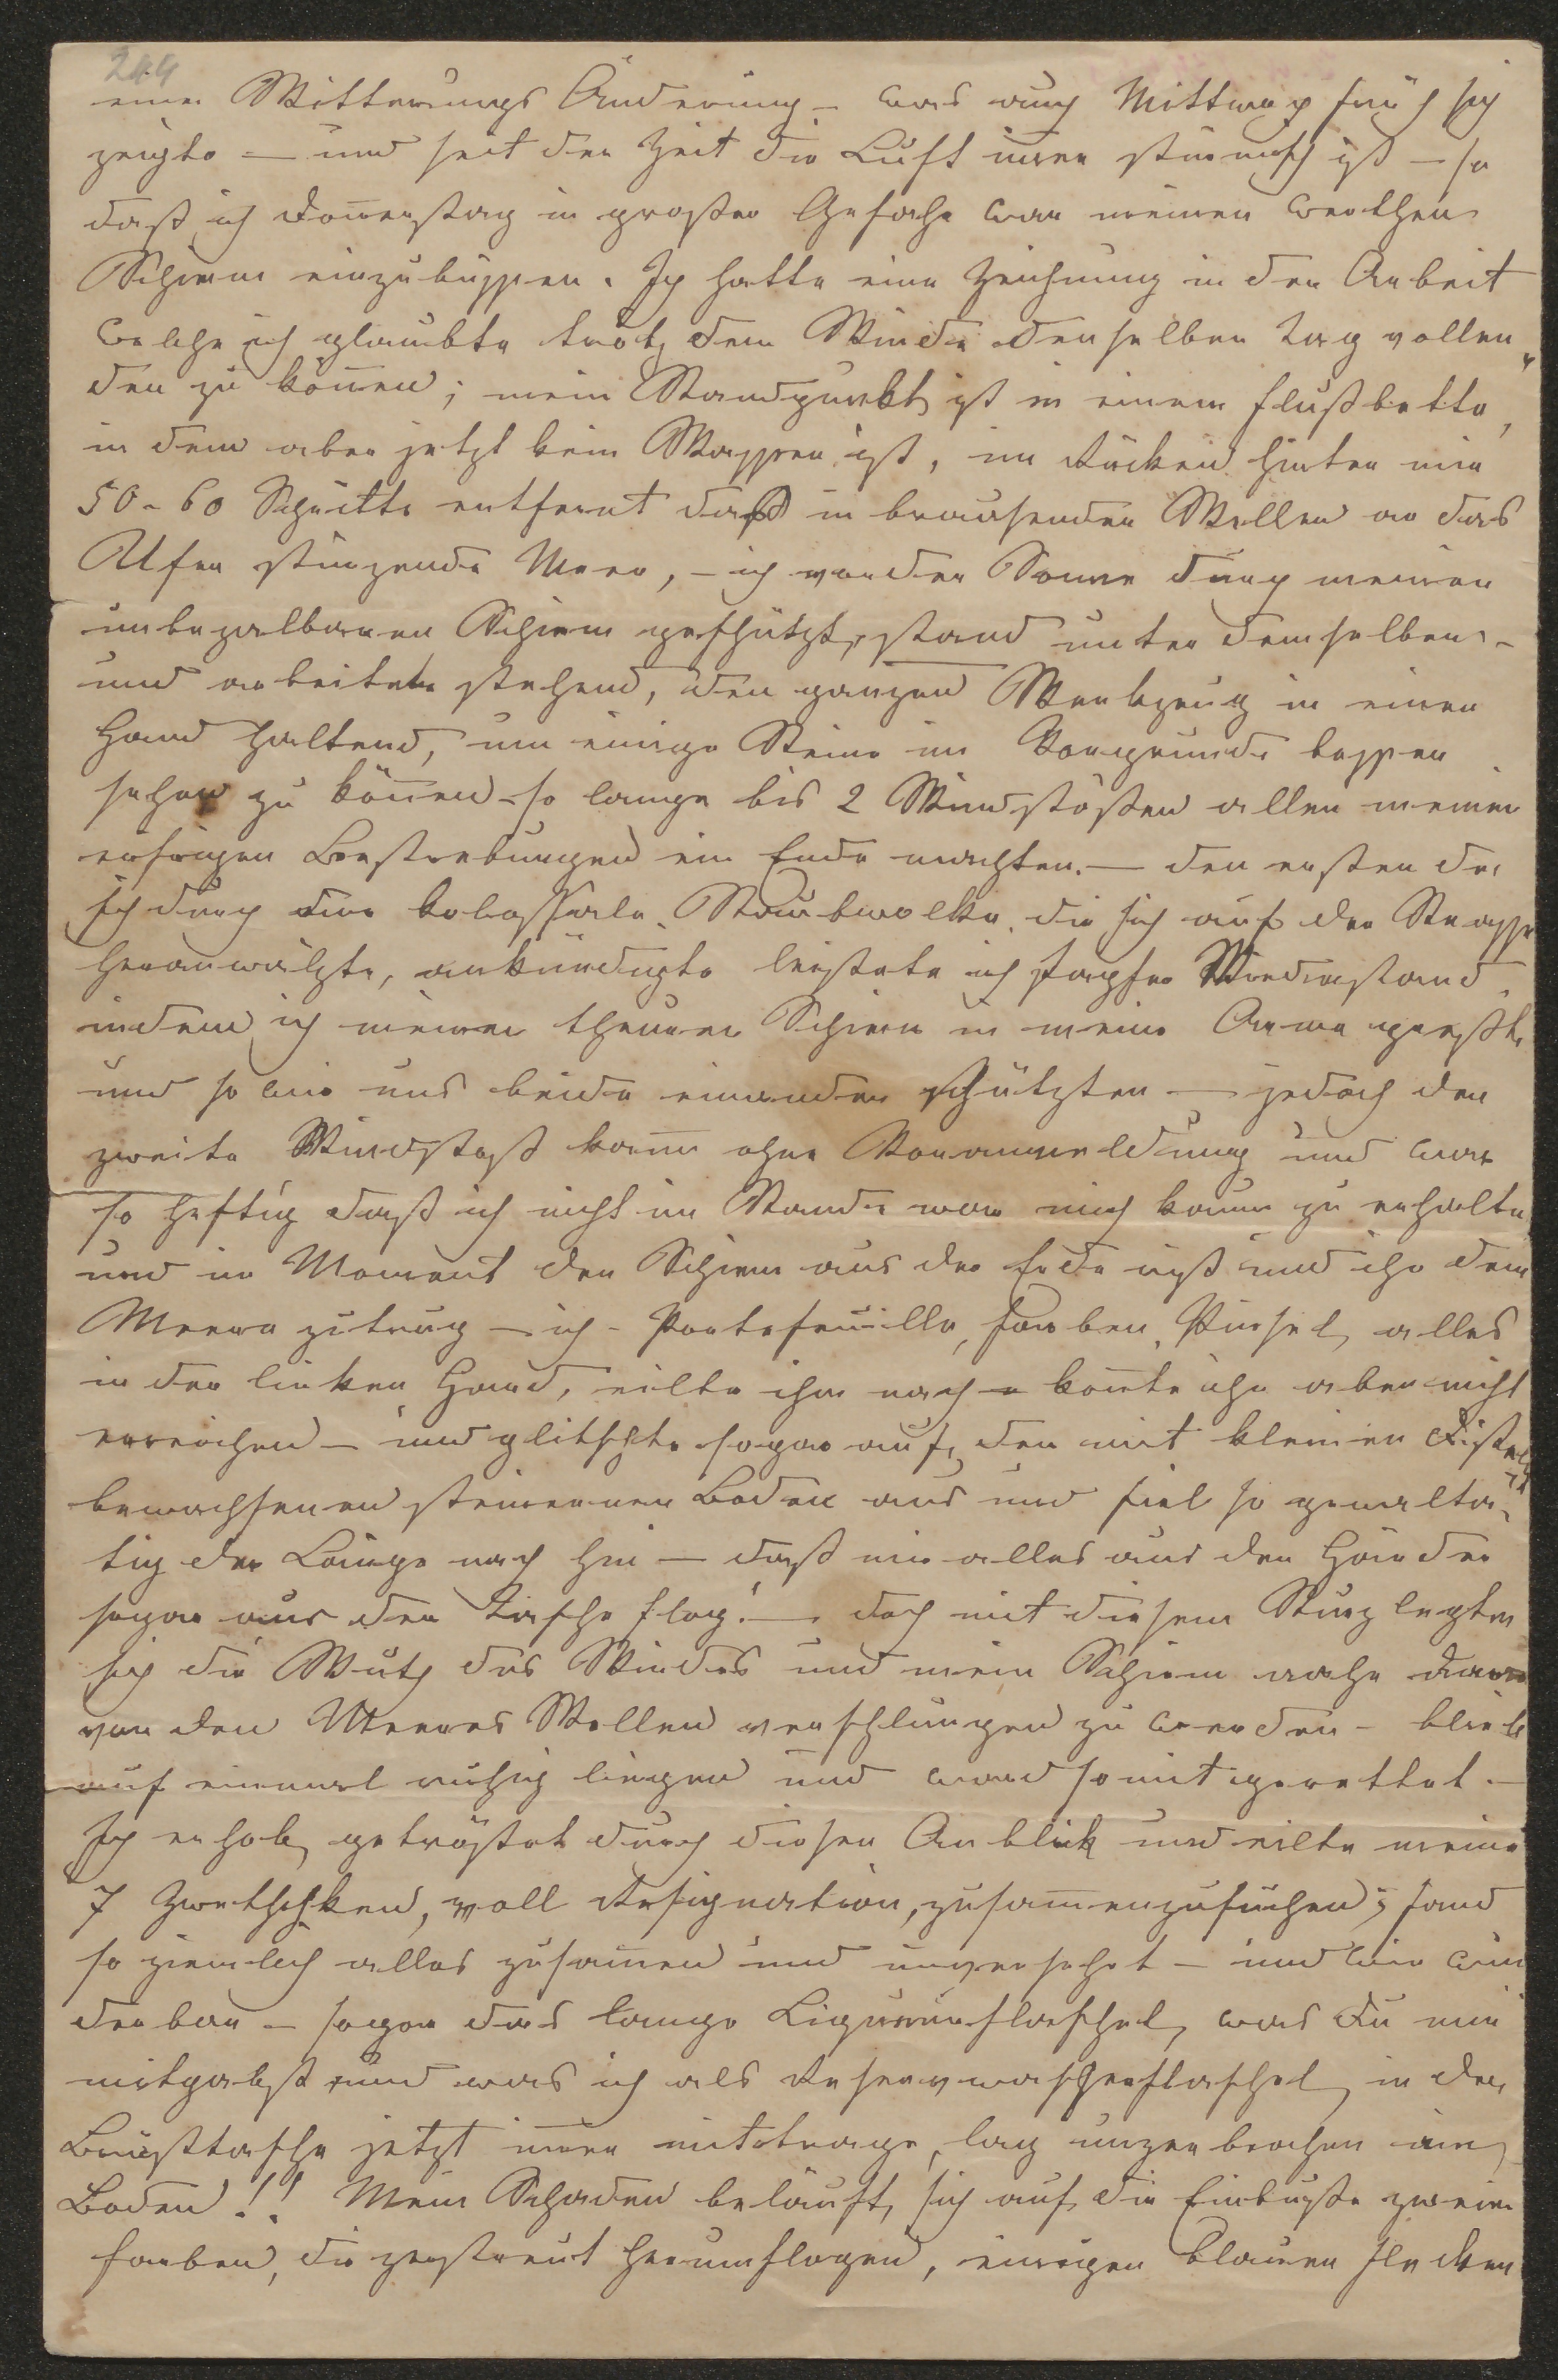 244
einer Witterungs Änderung – was auch Mittwoch früh sich
zeigte – und seit der Zeit die Luft im̅er stürmisch ist – so
daß ich Don̅erstag in großer Gefahr war meinen werthen
Schirm einzubüssen. Ich hatte eine Zeichnung in der Arbeit
welche ich glaubte trotz dem Winde denselben Tag vollen„
den zu kön̅en; mein Standpunkt ist in einem Flußbette,
in dem aber jetzt kein Wasser ist, im Rücken hinter mir
50–60 Schritte entfernt das in brausenden Wellen an das
Ufer stürzende Meer, – ich vor der Sonne durch meinen
unbezalbaren Schirm geschützt, stand unter demselben –
und arbeitete stehend, den ganzen Werkzeug in einer
Hand haltend, um einige Steine im Vorgrunde besser
sehen zu kön̅en – so lange bis 2 Windstößen allen meinen
eifrigen Bestrebungen ein Ende machten. – den ersten der
sich durch eine kolossale Staubwolke, die sich auf der Strasse
heranwälzte, ankündigte leistete ich tapfer Widerstand,
indem ich meinen theuren Schirm in meine Arme presste
und so wir uns beide einander schützten – jedoch der
zweite Windstoß kam ohne Voranmeldung und war
so heftig daß ich nicht im Stande war mich kaum zu erhalten
und im Moment den Schirm aus der Erde riß und ihn dem
Meere zutrug – ich – Portefeuille, Farben, Pinsel, alles
in der linken Hand, eilte ihm nach – kon̅te ihn aber nicht
erreichen – und glitschte sogar auf den mit kleinen Disteln
bewachsenen steinernen Boden aus und fiel so gewaltä„
tig der Länge nach hin – daß mir alles aus den Händen
sogar aus der Tasche flog! – doch mit diesem Sturz legten
sich die Wuth des Windes und mein Schirm nahe daran
von den Meeres Wellen verschlungen zu werden – blieb
auf einmal ruhig liegen und ward somit gerettet –
Ich erhob getröstet durch diesen Anblick und eilte meine
7 Zwetschken, voll Resignation, zusam̅enzusuchen; fand
so ziemlich alles zusam̅en und unversehrt – und wie wun
derbar – sogar das lange Liqueurflaschel, was Du mir
mitgabst und was ich als Reservwasserflaschel in der
Brusttasche jetzt im̅er mittrage, lag unzerbrochen am
Boden!! Mein Schaden beläuft sich auf die Einbuße zweier
Farben, die zerstreut herumflogen, einigen blauen Flecken